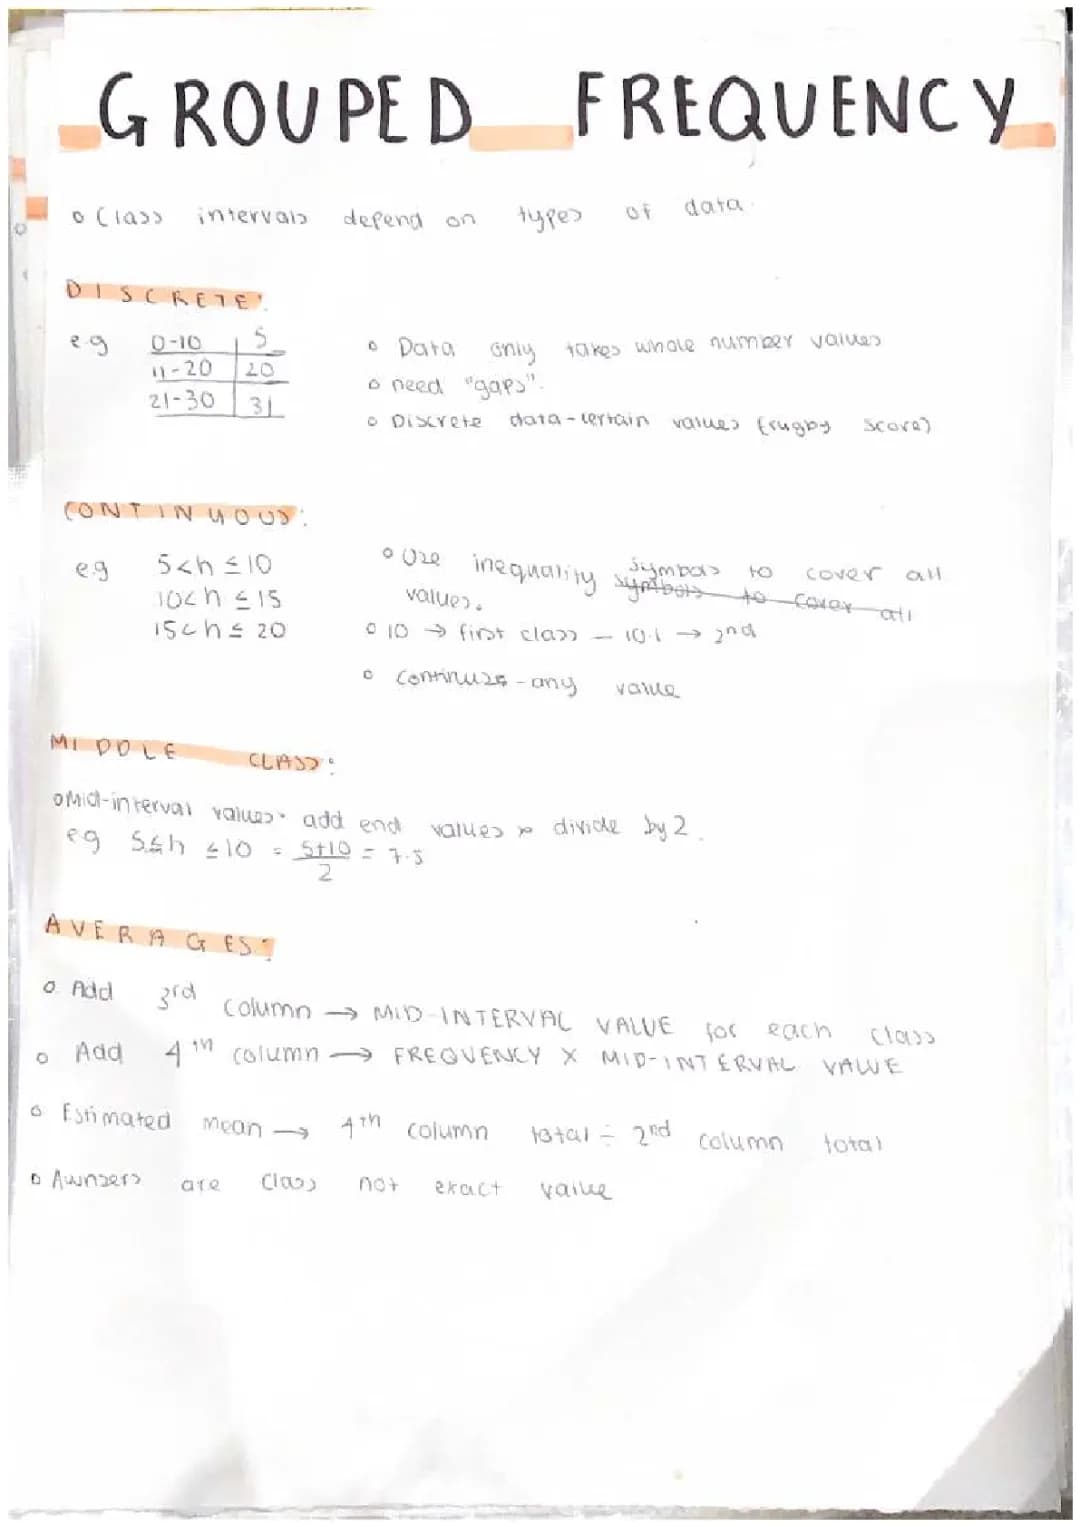 GROUPED FREQUENCY
o Class intervals depend on types of data.
DISCRETE:
e.g 0-10 | 5
11-20 | 20
21-30 | 31
o Data only takes whole number values
o need "gaps".
o Discrete data - certain values (rugby score)
CONTINUOUS:
e.g 5<h≤10
10<h≤15
15<h≤20
o Use inequality symbols to cover all
symbols to cover all
values.
o 10 → first class - 10.1 → 2nd
o continuzs - any value
MIDDLE CLASS:
o Mid-interval values. add end values & divide by 2.
eg 5≤h≤10 = 5+10/2 = 7.5
AVERAGES:
o Add 3rd column → MID-INTERVAL VALUE for each class
o Add 4th column → FREQUENCY X MID-INTERVAL VALUE
o Estimated mean → 4th column total ÷ 2nd column total
o Awnsers are class not exact value